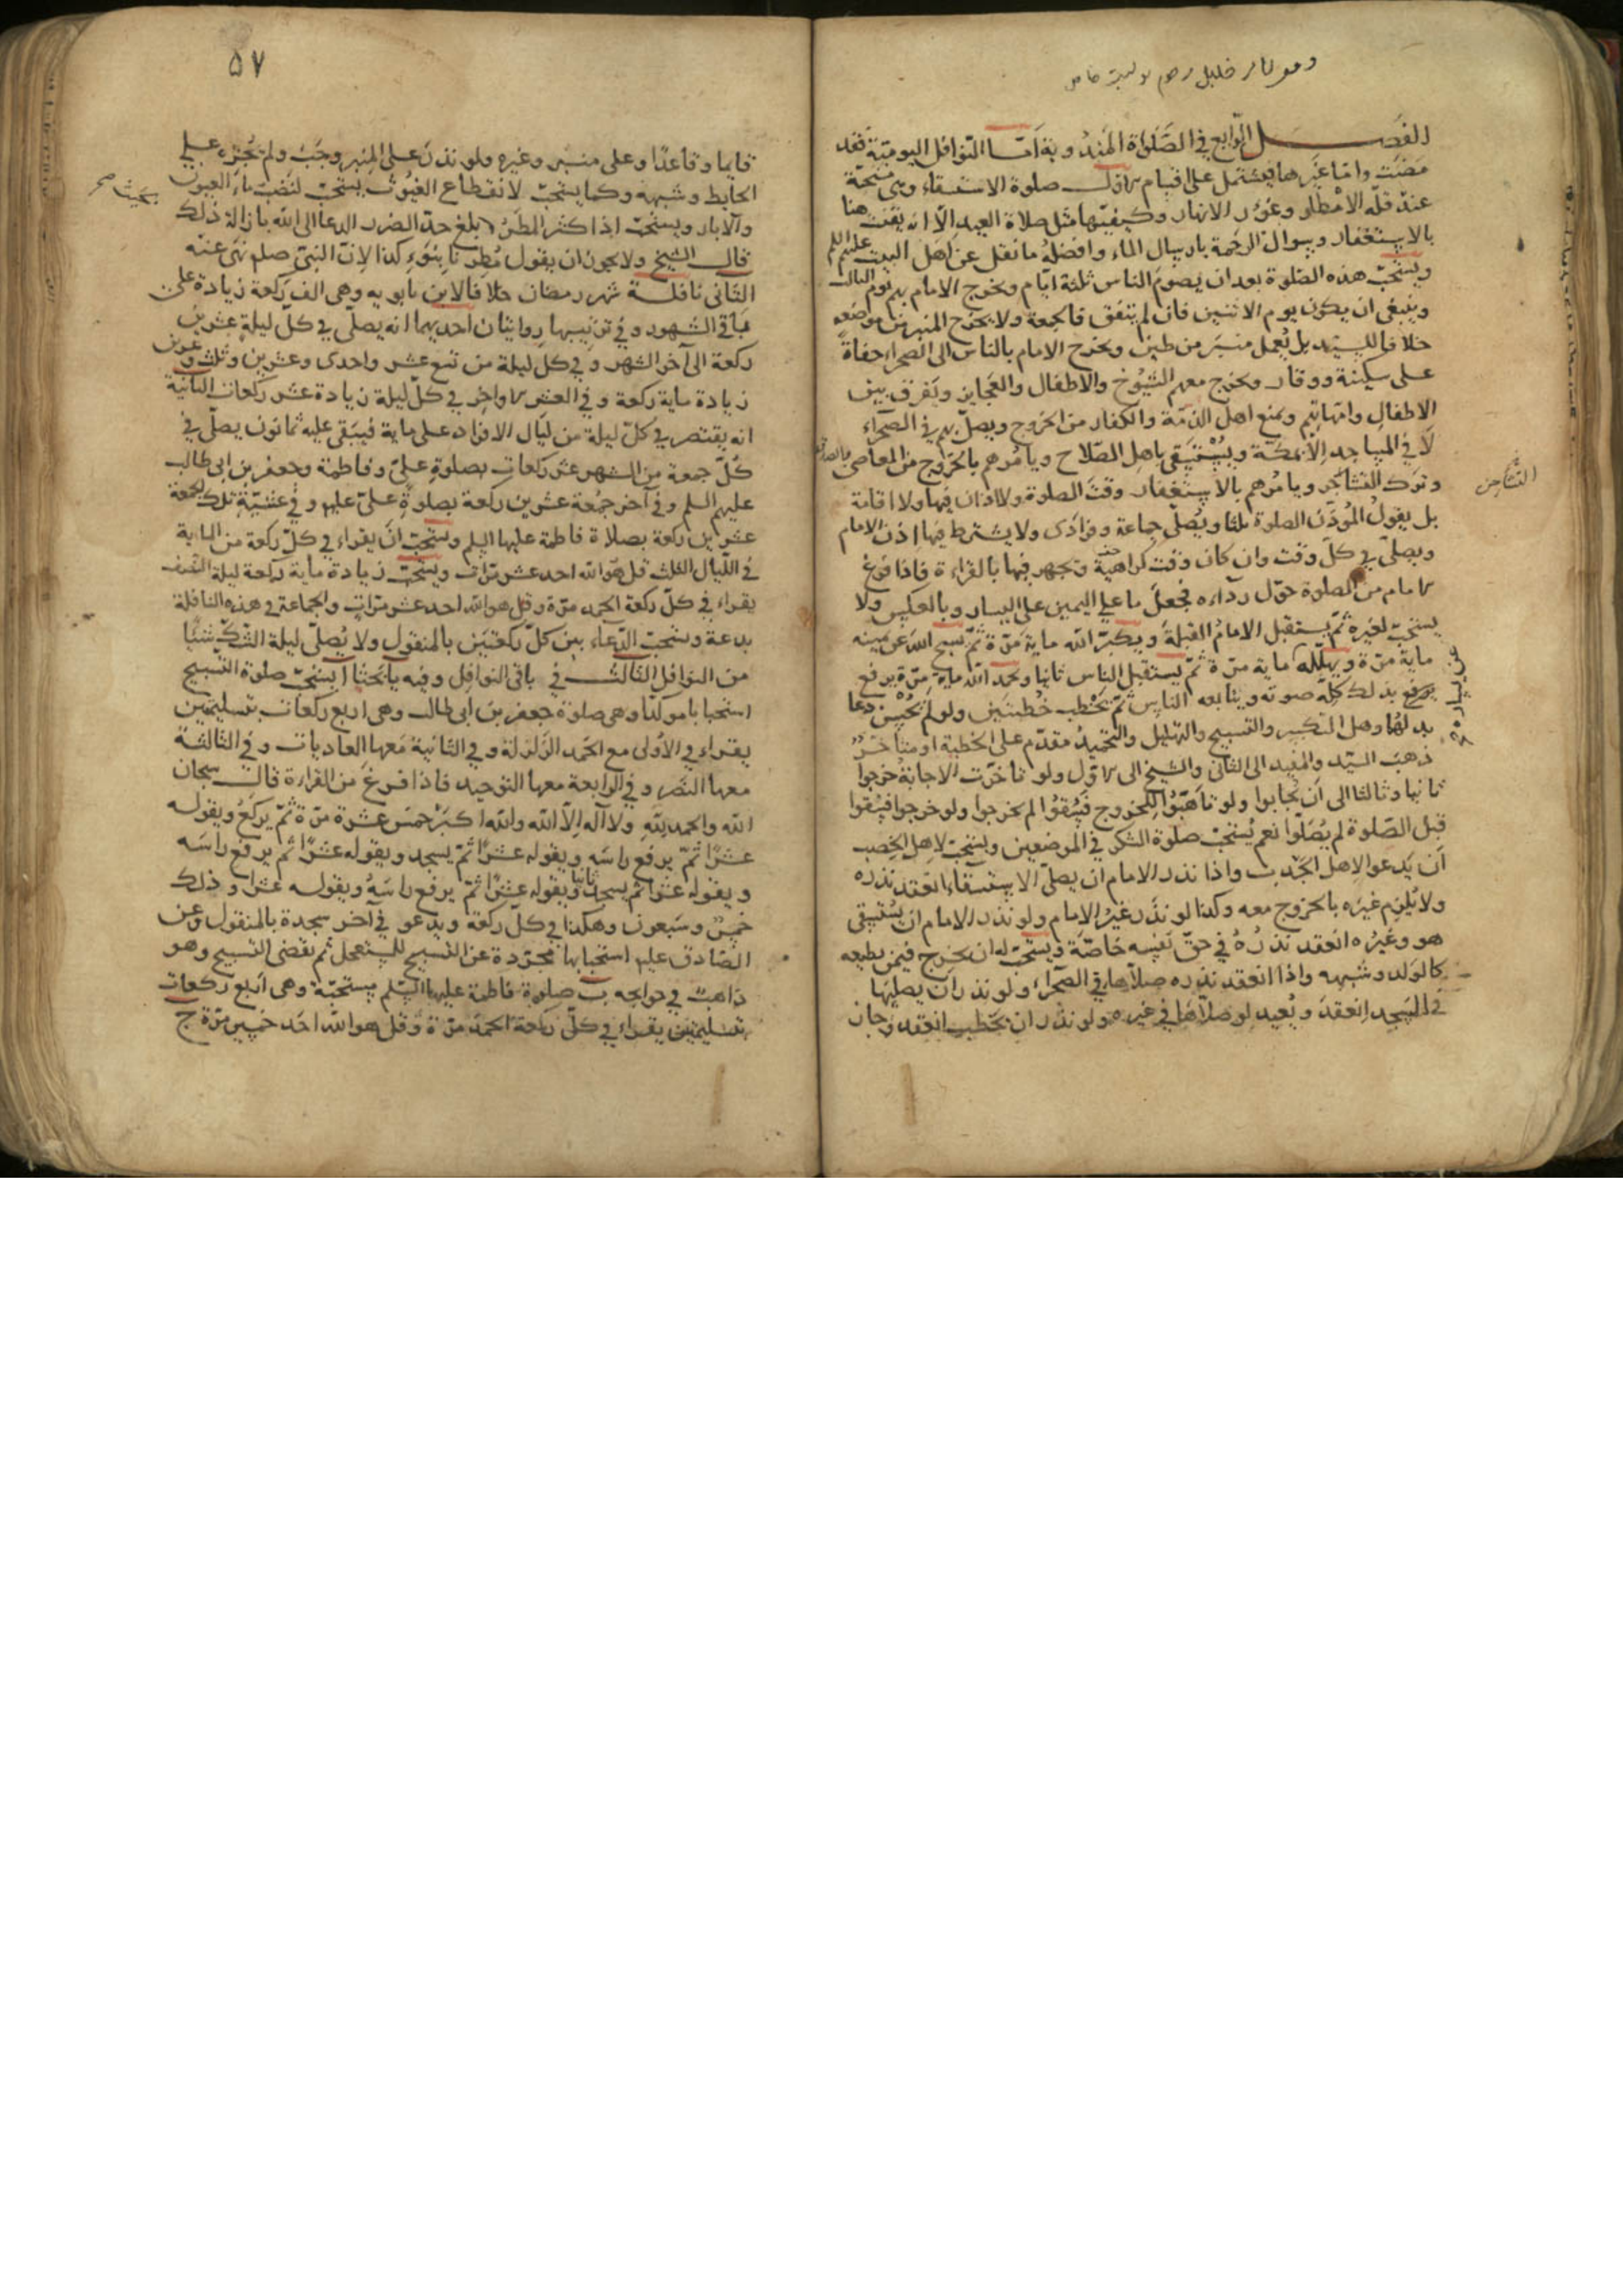 الفصل الرابع في الصلواة المندوبة اما النوافل اليومية فقد
مضت واما غيرها فيشتمل على اقسام الاول صلوة الاستسقاء وهى مستحبة
عند قلة الامطار وغور الانهار وكيفيتها مثل صلاة العيد الا انه يقنت هنا
بالاستغفار وسوال الرحمة بارسال الماء وافضله ما نقل عن اهل البيت عليهم السلم
ويستحب هذه الصلوة بعد ان يصوم الناس ثلثة ايام ويخرج الامام بهم يوم الثالث
وينبغى ان يكون يوم الاثنين فان لم يتفق فالجمعة ولا يخرج المنبر من موضعه
خلافا للسيد بل يعمل منبر من طين ويخرج الامام بالناس الى الصحراء حفاة
على سكينة ووقار ويخرج معهم الشيوخ والاطفال والعجايز ويفرق بين
الاطفال وامهاتهم ويمنع اهل الذمة والكفار من الخروج ويصلى بهم في الصحراء
لا في المساجد الا بمكة ويستسقى باهل الصلاح ويامرهم بالخروج من المعاصى
وترك التشاجر ويامرهم بالاستغفار وقت الصلوة ولا اذان فيها ولا اقامة
التشاجن
بل يقول المؤذن الصلوة ثلثا ويصلى جماعة وفرادى ولا يشترط فيها اذن الامام
ويصلى في كل وقت وان كان وقت كراهية ويجهر فيها بالقراءة فاذا فرغ
الامام من الصلوة حول رداءه فجعل ما على اليمين على اليسار وبالعكس ولا
يستحب لغيره ثم يستقبل الامام القبلة ويكبر الله ماية مرة ثم يسبح الله عن يمينه
ماية مرة ويهلله ماية مرة ثم يستقبل الناس ثانيا ويحمد الله ماية مرة يرفع
عن يساره
بذلك كله صوته ويتابعه الناس ثم يخطب خطبتين ولو لم يحسن دعا
بدلهما وهل التكبير والتسبيح والتهليل والتحميد مقدم على الخطبة او متاخر
ذهب السيد والمفيد الى الثانى والشيخ الى الاول ولو تاخرت الاجابة خرجوا
ثانيا وثالثا الى ان يجابوا ولو تاهبوا للخروج فسقوا لم يخرجوا ولو خرجوا فسقوا
قبل الصلوة لم يصلوا نعم يستحب صلوة الشكر في الموضعين ويستحب لاهل الخصب
ان يدعوا لاهل الجدب واذا نذر الامام ان يصلى الاستسقاء انعقد نذره
ولا يلزم غيره بالخروج معه وكذا لو نذر غير الامام ولو نذر الامام ان يستسقى
هو وغيره انعقد نذره في حق نفسه خاصة ويستحب له ان يخرج فيمن يطيعه
كالولد وشبهه واذا انعقد نذره صلاها في الصحراء ولو نذر ان يصليها
في المسجد انعقد ويعيد لو صلاها في غيره ولو نذر ان يخطب انعقد وجاز
٥٧
قايما وقاعدا وعلى منبر وغيره ولو نذر على المنبر وجب ولم يجزه على
الحايط وشبهه وكما يستحب لانقطاع الغيوث يستحب لنضب ماء العيون
والآبار ويستحب اذا كثر المطر بلغ حد الضرر الدعا الى الله بازالة ذلك
بحيث صح
قال الشيخ ولا يجوز ان يقول مطرنا بنوء كذا لان النبى صلم نهى عنه
الثانى نافلة شهر رمضان خلافا لابن بابويه وهى الف ركعة زيادة على
باقى الشهور وفي ترتيبها روايتان احديهما انه يصلى في كل ليلة عشرين
ركعة الى آخر الشهر وفي كل ليلة من تسع عشر واحدى وعشرين وثلث وعشرين
زيادة ماية ركعة وفي العشر الاواخر في كل ليلة زيادة عشر ركعات الثانية
انه يقتصر في كل ليلة من ليال الافراد على ماية فيبقى عليه ثمانون يصلى في
كل جمعة من الشهر عشر ركعات بصلوة على وفاطمة وجعفر بن ابى طالب
عليهم السلم وفي آخر جمعة عشرين ركعة بصلوة على عليه وفي عشية تلك الجمعة
عشرين ركعة بصلاة فاطمة عليها السلم ويستحب ان يقراء في كل ركعة من الماية
في الليال الثلث قل هو الله احد عشر مرات ويستحب زيادة ماية ركعة ليلة النصف
يقراء في كل ركعة الحمد مرة وقل هو الله احد عشر مرات والجماعة في هذه النافلة
بدعة ويستحب الدعاء بين كل ركعتين بالمنقول ولا يصلى ليلة الشك شيئا
من النوافل الثالث في باقى النوافل وفيه يا بحثا ا يستحب صلوة التسبيح
استحبابا موكدا وهى صلوة جعفر بن ابى طالب وهى اربع ركعات بتسليمتين
يقراء في الاولى مع الحمد الزلزلة وفي الثانية معها العاديات وفي الثالثة
معها النصر وفي الرابعة معها التوحيد فاذا فرغ من القراءة قال سبحان
الله والحمد لله ولا اله الا الله والله اكبر خمس عشرة مرة ثم يركع ويقوله
عشرا ثم يرفع راسه ويقوله عشرا ثم يسجد ويقوله عشرا ثم يرفع راسه
ويقوله عشرا ثم يسجد ثانيا ويقوله عشرا ثم يرفع راسه ويقوله عشرا وذلك
خمس وسبعون وهكذا في كل ركعة ويدعو في آخر سجدة بالمنقول وعن
الصادق عليه استحبابها مجردة عن التسبيح للمستعجل ثم يقضى التسبيح وهو
ذاهب في حوايجه ب صلوة فاطمة عليها السلم مستحبة وهى اربع ركعات
بتسليمتين يقراء في كل ركعة الحمد مرة وقل هو الله احد خمسين مرة ج